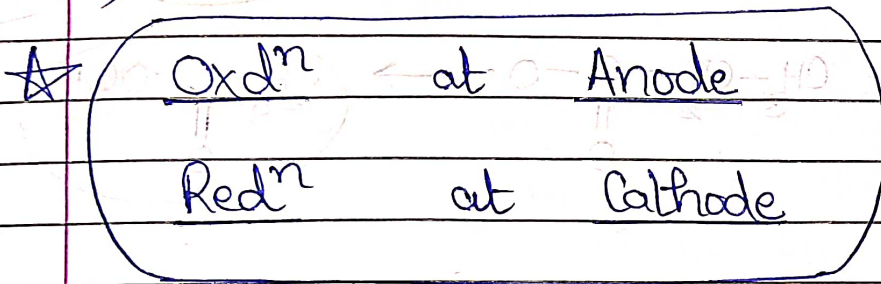 Oxdⁿ at Anode
Redⁿ at Cathode